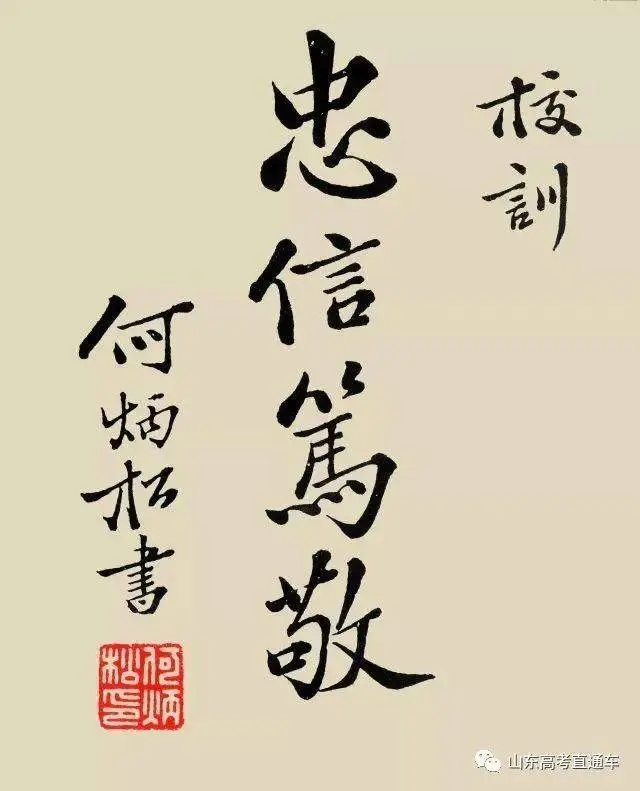 校訓
忠信篤敬
何炳松書
何炳松印
山东高考直通车